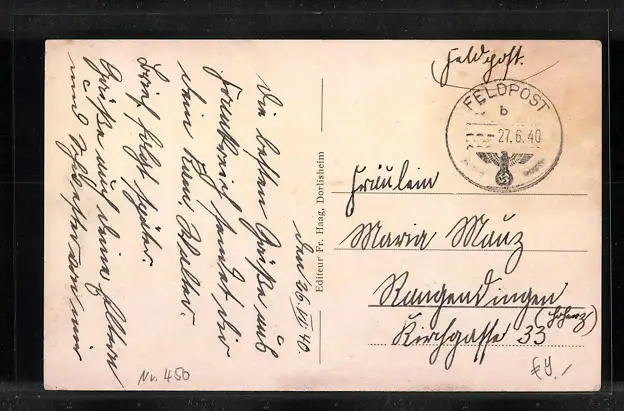 Feldpost.
FELDPOST
b
27.6.40
den 26.VI.40.
Die besten Grüße aus
Frankreich sendet dir
dein Walter.
Brief folgt später.
Grüße auch deine Eltern
und Schwester von mir
Editeur Fr. Haag, Dorlisheim
Fräulein
Maria Manz
Rangendingen
(Hohenz)
Kirchgasse 33
Nr. 450